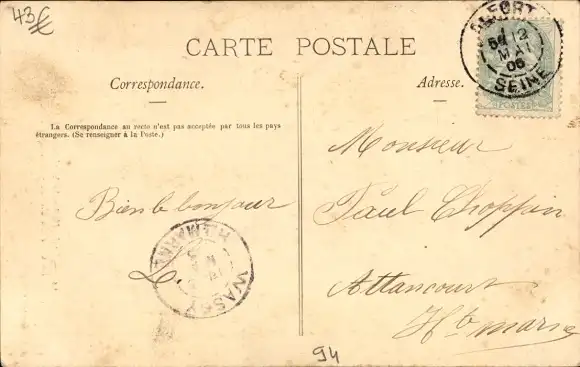 43€
CARTE POSTALE
Correspondance.
Adresse.
La Correspondance au recto n'est pas acceptée par tous les pays
étrangers. (Se renseigner à la Poste.)
ALFORT
12
MAI
06
SEINE
Monsieur
Bien le bonjour
Paul Choppin
L.
WASSY
Hte MARNE
Attancourt
Hte marne
94